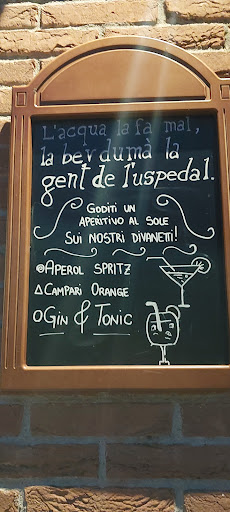 L'acqua la fa mal,
la bev dumà la
gent de l'uspedal.
GODITI UN
APERITIVO AL SOLE
SUI NOSTRI DIVANETTI!
APEROL SPRITZ
CAMPARI ORANGE
GIN & TONIC